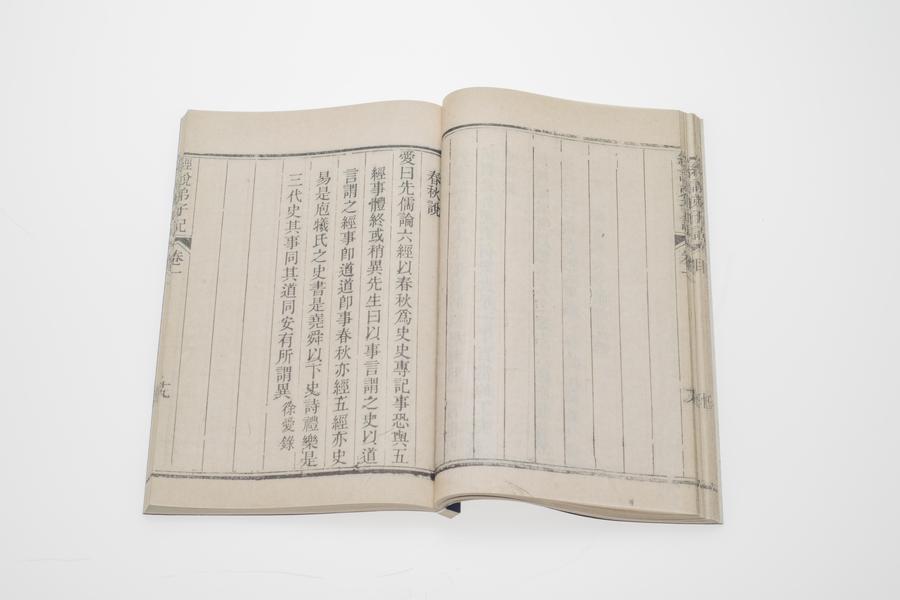 春秋說
愛曰先儒論六經以春秋爲史史專記事恐與五
經事體終或稍異先生曰以事言謂之史以道
言謂之經事卽道道卽事春秋亦經五經亦史
易是庖犧氏之史書是堯舜以下史詩禮樂是
三代史其事同其道同安有所謂異 徐愛錄
經說弟子記
卷一
十九